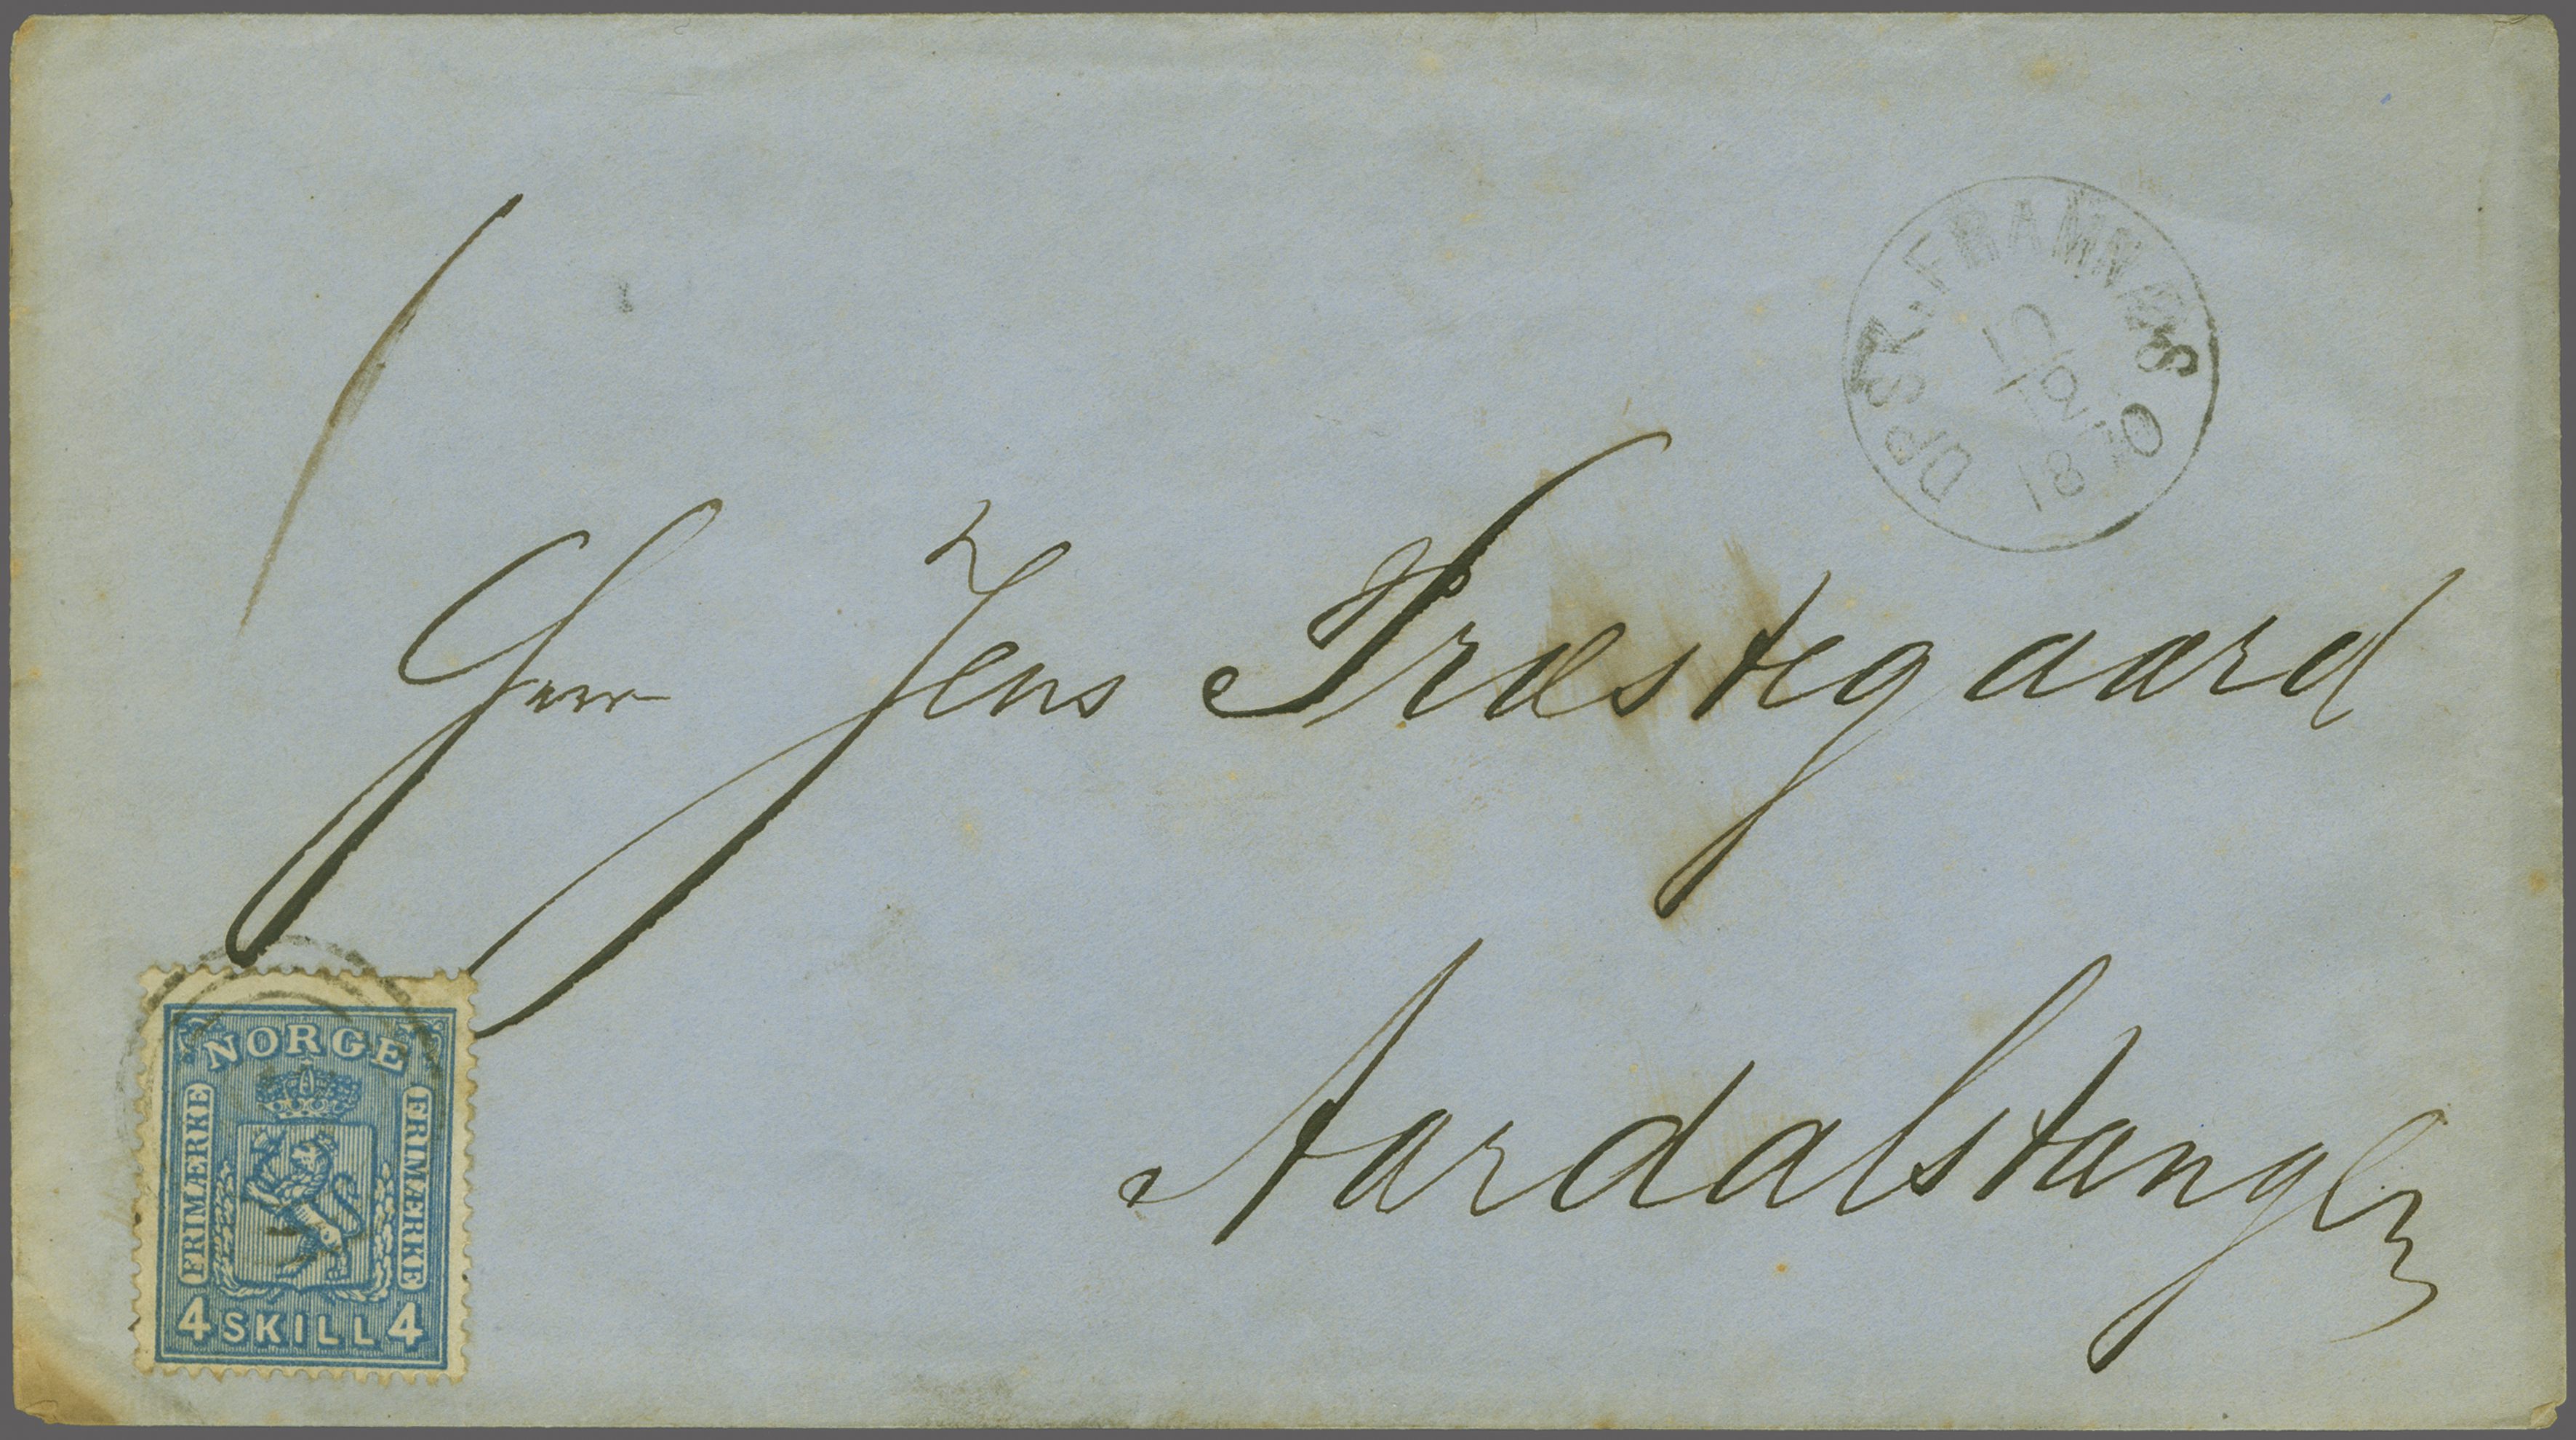 DPSK. FRAMNÆS
18 70
Herr Jens Præstegaard
Aardalstangen
NORGE
FRIMÆRKE
FRIMÆRKE
4 SKILL 4